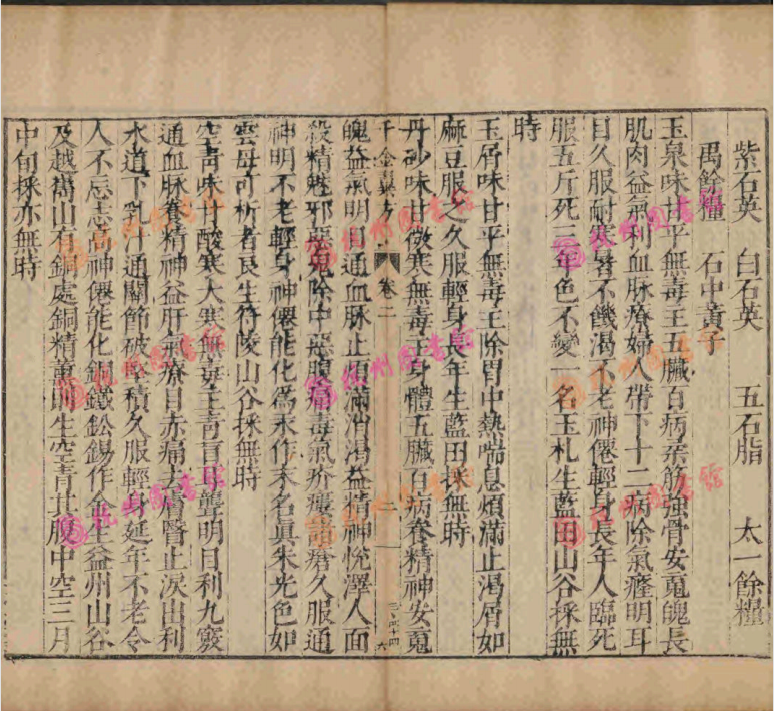 紫石英　白石英　五石脂　太一餘糧
禹餘糧　石中黃子
玉泉味甘平無毒主五臟百病柔筋強骨安䰟魄長
肌肉益氣利血脉療婦人帶下十二病除氣癃明耳
目久服耐寒暑不饑渴不老神僊輕身長年人臨死
服五斤死三年色不變一名玉札生藍田山谷採無
時
玉屑味甘平無毒主除胃中熱喘息煩滿止渴屑如
麻豆服之久服輕身長年生藍田採無時
丹砂味甘微寒無毒主身體五臟百病養精神安䰟
千金翼方　卷二　二
魄益氣明目通血脉止煩滿消渴益精神悅澤人面
殺精魅邪惡鬼除中惡腹痛毒氣疥瘻諸瘡久服通
神明不老輕身神僊能化爲汞作末名眞朱光色如
雲母可析者良生符陵山谷採無時
空青味甘酸寒大寒無毒主青盲耳聾明目利九竅
通血脉養精神益肝氣療目赤痛去膚翳止淚出利
水道下乳汁通關節破堅積久服輕身延年不老令
人不忘志高神僊能化銅鐵鈆錫作金生益州山谷
及越嶲山有銅處銅精熏則生空青其腹中空三月
中旬採亦無時